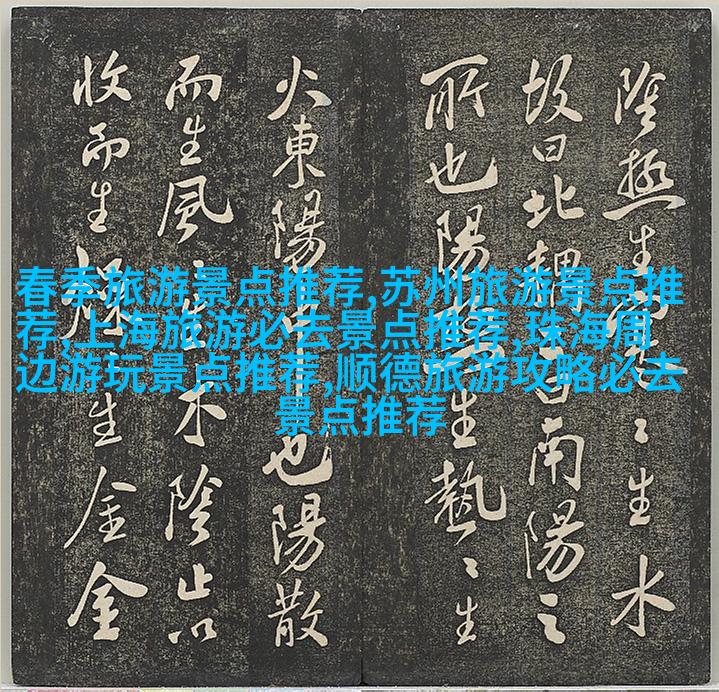 春季旅游景点推荐,苏州旅游景点推
荐,上海旅游必去景点推荐,珠海周
边游玩景点推荐,顺德旅游攻略必去
景点推荐
陰極生〻生水
故曰北耦曰南陽之
所也陽生熱〻生
火東陽也陽散
而生風〻生木陰止以
收而生燥生金金